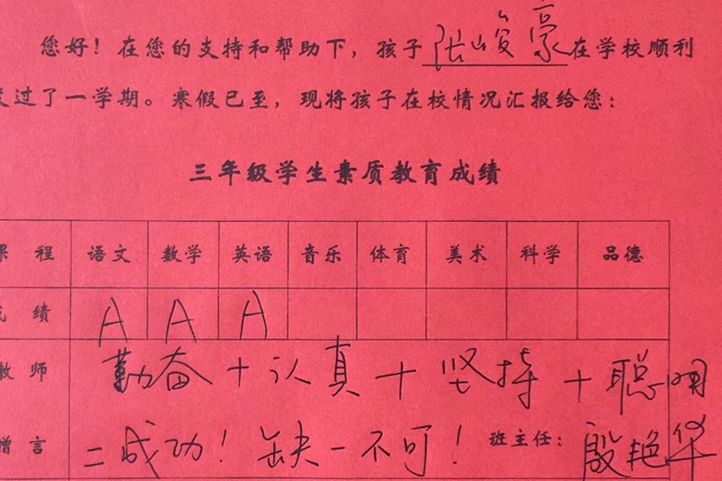 您好！在您的支持和帮助下，孩子张峻豪在学校顺利
度过了一学期。寒假已至，现将孩子在校情况汇报给您：
三年级学生素质教育成绩
课 程 语文 数学 英语 音乐 体育 美术 科学 品德
成 绩 A A A
教 师 勤奋＋认真＋坚持＋聪明
赠 言 ＝成功！缺一不可！ 班主任：殷艳华